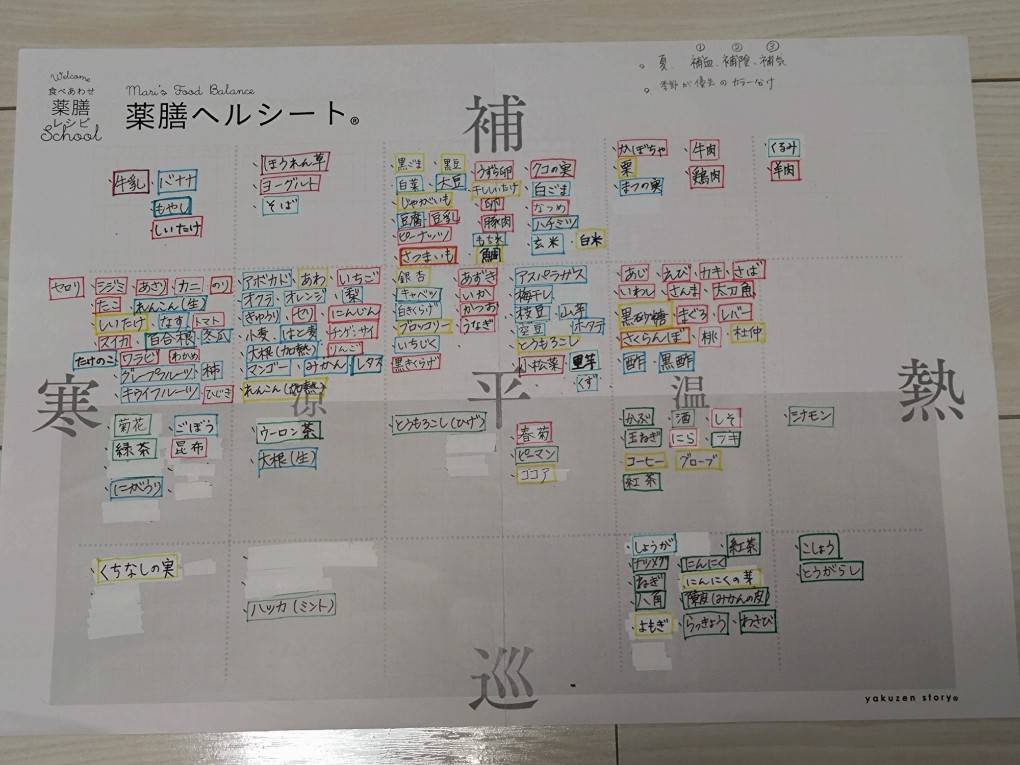 Welcome
食べあわせ
薬膳
レシピ
School
Mari's Food Balance
薬膳ヘルシート®
① ② ③
。夏、補血、補陰、補気
。季節が優先のカラーなけ
補
・牛乳 ・バナナ
・もやし
・しいたけ
・ほうれん草
・ヨーグルト
・そば
・黒ごま ・黒豆 ・うずら卵 ・クコの実
・白菜 ・大豆 ・干ししいたけ ・白ごま
・じゃがいも ・卵 ・なつめ
・豆腐 ・豆乳 ・豚肉 ・ハチミツ
・ピーナッツ ・もち米 ・玄米 ・白米
・さつまいも ・鯛
・かぼちゃ ・牛肉
・栗 ・鶏肉
・まつの実
・くるみ
・羊肉
セロリ ・シジミ ・あさり ・カニ ・のり
・たこ ・れんこん(生)
・しいたけ ・なす ・トマト
・スイカ ・百合根 ・冬瓜
・たけのこ ・ワラビ ・わかめ
・グレープフルーツ ・柿
・キウイフルーツ ・ひじき
・アボカド ・あわ ・いちご
・オクラ ・オレンジ ・梨
・きゅうり ・セリ ・にんじん
・小麦 ・はと麦 ・チンゲンサイ
・大根(加熱) ・りんご
・マンゴー ・みかん ・レタス
・れんこん(加熱)
・銀杏 ・あずき ・アスパラガス
・キャベツ ・いか ・梅干し
・白きくらげ ・かつお ・枝豆 ・山芋
・ブロッコリー ・うなぎ ・空豆 ・ホタテ
・いちじく ・とうもろこし
・黒きくらげ ・小松菜 ・里芋
・くず
・あじ ・えび ・カキ ・さば
・いわし ・さんま ・太刀魚
・黒砂糖 ・まぐろ ・レバー
・さくらんぼ ・桃 ・杜仲
・酢 ・黒酢
寒 涼 平 温 熱
・菊花 ・ごぼう
・緑茶 ・昆布
・にがうり
・ウーロン茶
・大根(生)
・とうもろこし(ひげ)
・春菊
・ピーマン
・ココア
・かぶ ・酒 ・しそ
・玉ねぎ ・にら ・フキ
・コーヒー ・グローブ
・紅茶
・シナモン
・くちなしの実
・ハッカ(ミント)
・しょうが ・紅茶
・ナツメグ ・にんにく
・ねぎ ・にんにくの芽
・八角 ・陳皮(みかんの皮)
・よもぎ ・らっきょう ・わさび
・こしょう
・とうがらし
巡
yakuzen story®